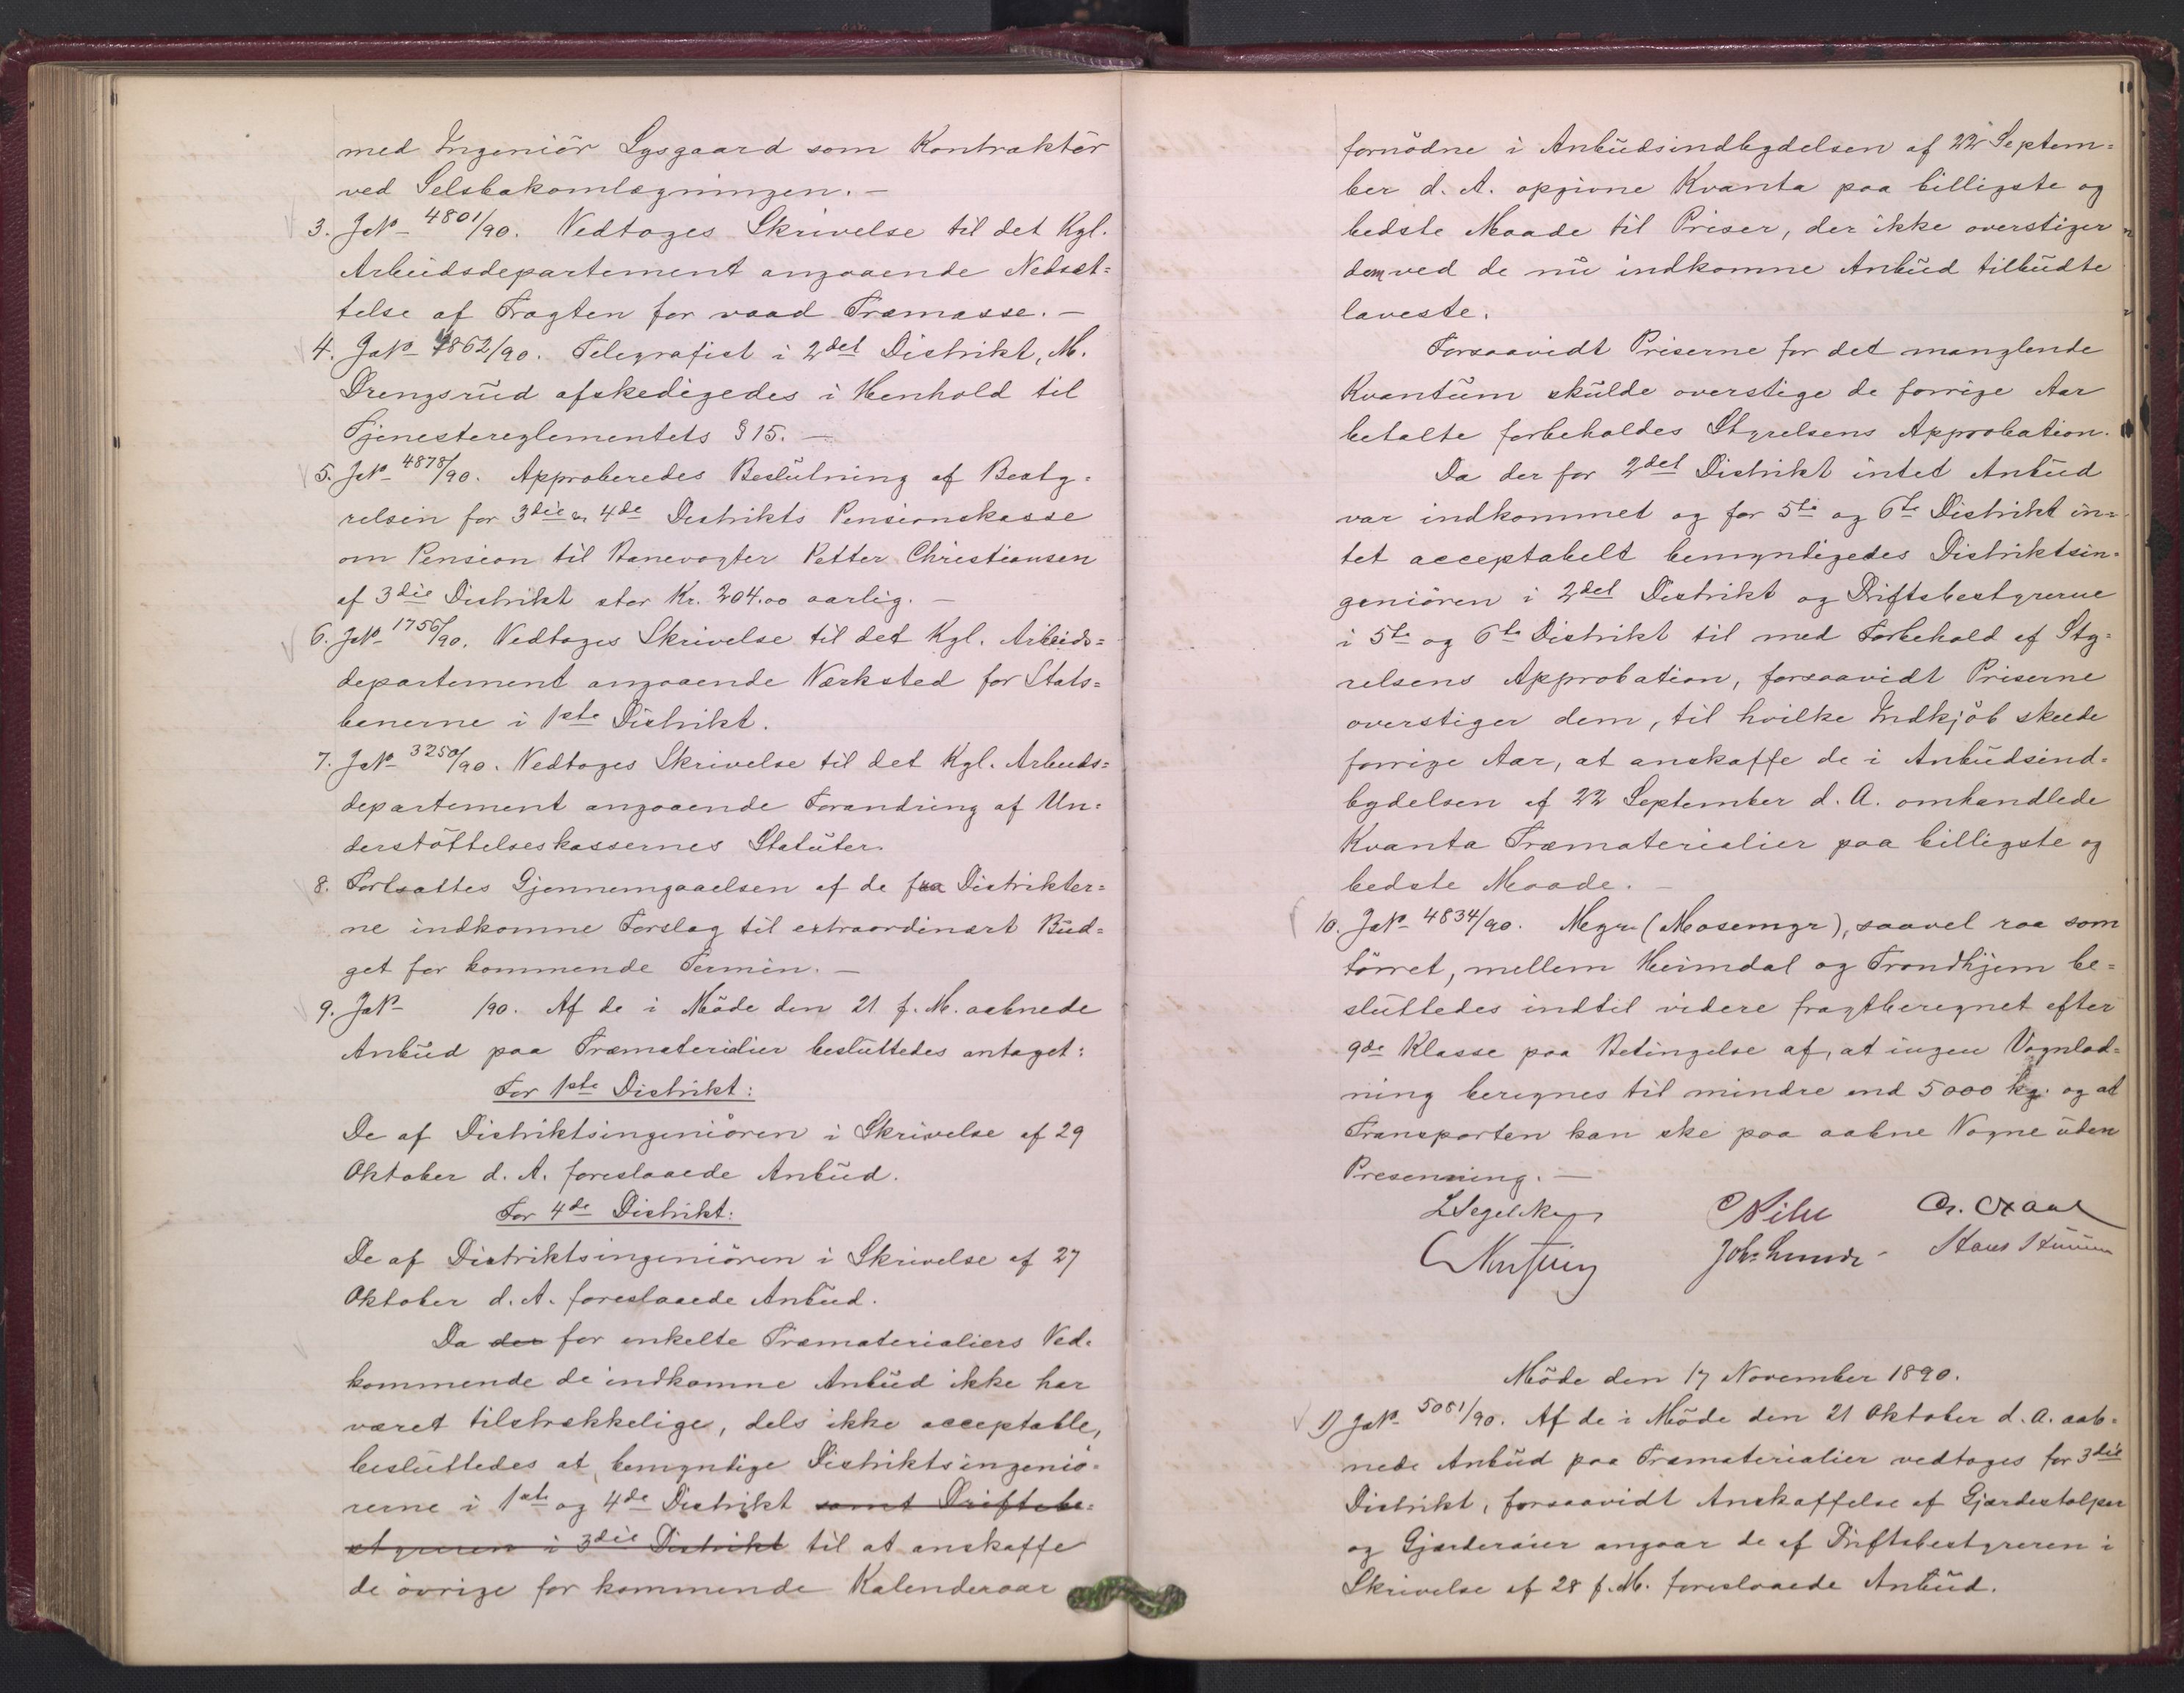 med Ingeniör Lysgaard som Kontraktör
ved Selsbakomlægningen. —
3. JNo 4801/90. Vedtoges Skrivelse til det Kgl.
Arbeidsdepartement angaaende Nedsæt=
telse af Fragten for vaad Træmasse. —
4. JNo 4862/90. Telegrafist i 2det Distrikt, M.
Drengsrud afskedigedes i Henhold til
Tjenestereglementets § 15. —
5. JNo 4878/90. Approberedes Beslutning af Besty=
relsen for 3die & 4de Distrikts Pensionskasse
om Pension til Banevogter Petter Christiansen
af 3die Distrikt stor Kr. 204.00 aarlig. —
6. JNo 1756/90. Vedtoges Skrivelse til det Kgl. Arbeids=
departement angaaende Værksted for Stats=
banerne i 1ste Distrikt.
7. JNo 3250/90. Vedtoges Skrivelse til det Kgl. Arbeids=
departement angaaende Forandring af Un=
derstöttelseskassernes Statuter.
8. Fortsattes Gjennemgaaelsen af de fra Distrikter=
ne indkomne Forslag til extraordinært Bud=
get for kommende Termin. —
9. JNo /90. Af de i Möde den 21 f. M. aabnede
Anbud paa Træmaterialier besluttedes antaget:
For 1ste Distrikt:
De af Distriktsingeniören i Skrivelse af 29
Oktober d. A. foreslaaede Anbud.
For 4de Distrikt:
De af Distriktsingeniören i Skrivelse af 27
Oktober d. A. foreslaaede Anbud.
Da der for enkelte Træmaterialiers Ved=
kommende de indkomne Anbud ikke har
været tilstrækkelige, dels ikke acceptable,
besluttedes at bemyndige Distriktsingeniö=
rerne i 1ste og 4de Distrikt samt Driftsbe=
styreren i 3die Distrikt til at anskaffe
de övrige for kommende Kalenderaar
fornödne i Anbudsindbydelsen af 22 Septem=
ber d. A. opgivne Kvanta paa billigste og
bedste Maade til Priser, der ikke overstiger
dem ved de nu indkomne Anbud tilbudte
laveste.
Forsaavidt Priserne for det manglende
Kvantum skulde overstige de forrige Aar
betalte forbeholdes Styrelsens Approbation.
Da der for 2det Distrikt intet Anbud
var indkommet og for 5te og 6te Distrikt in=
tet acceptabelt bemyndigedes Distriktsin=
geniören i 2det Distrikt og Driftsbestyrerne
i 5te og 6te Distrikt til med Forbehold af Sty=
relsens Approbation, forsaavidt Priserne
overstiger dem, til hvilke Indkjöb skede
forrige Aar, at anskaffe de i Anbudsind=
bydelsen af 22 September d. A. omhandlede
Kvanta Træmaterialier paa billigste og
bedste Maade. —
10. JNo 4834/90. Myr (Mosemyr), saavel raa som
törret, mellem Heimdal og Trondhjem be=
sluttedes indtil videre fragtberegnet efter
9de Klasse paa Betingelse af, at ingen Vognlad=
ning beregnes til mindre end 5000 kg. og at
Transporten kan ske paa aabne Vogne uden
Presenning. —
L Segelcke CPihl
Joh. Lunde
Möde den 17 November 1890.
1) JNo 5081/90. Af de i Möde den 21 Oktober d. A. aab=
nede Anbud paa Træmaterialier vedtoges for 3die
Distrikt, forsaavidt Anskaffelse af Gjærdestolper
og Gjærderaier angaar de af Driftsbestyreren i
Skrivelse af 28 f. M. foreslaaede Anbud.